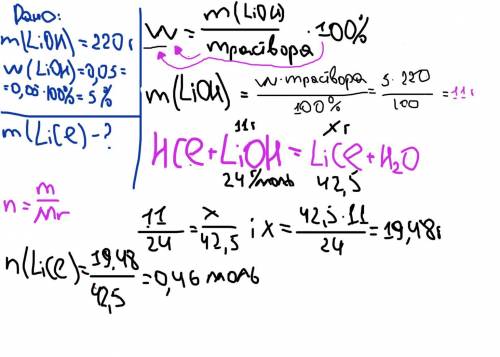 Дано:
m(LiOH)=220г
w(LiOH)=0,05=
=0,05·100%=5%
m(LiCl)-?
n=m/Mr
w=m(LiOH)/mраствора·100%
m(LiOH)=w·mраствора/100%=5·220/100=11г
11г xг
HCl+LiOH=LiCl+H₂O
24г/моль 42,5
11/24=x/42,5; x=42,5·11/24=19,48г
n(LiCl)=19,48/42,5=0,46 моль